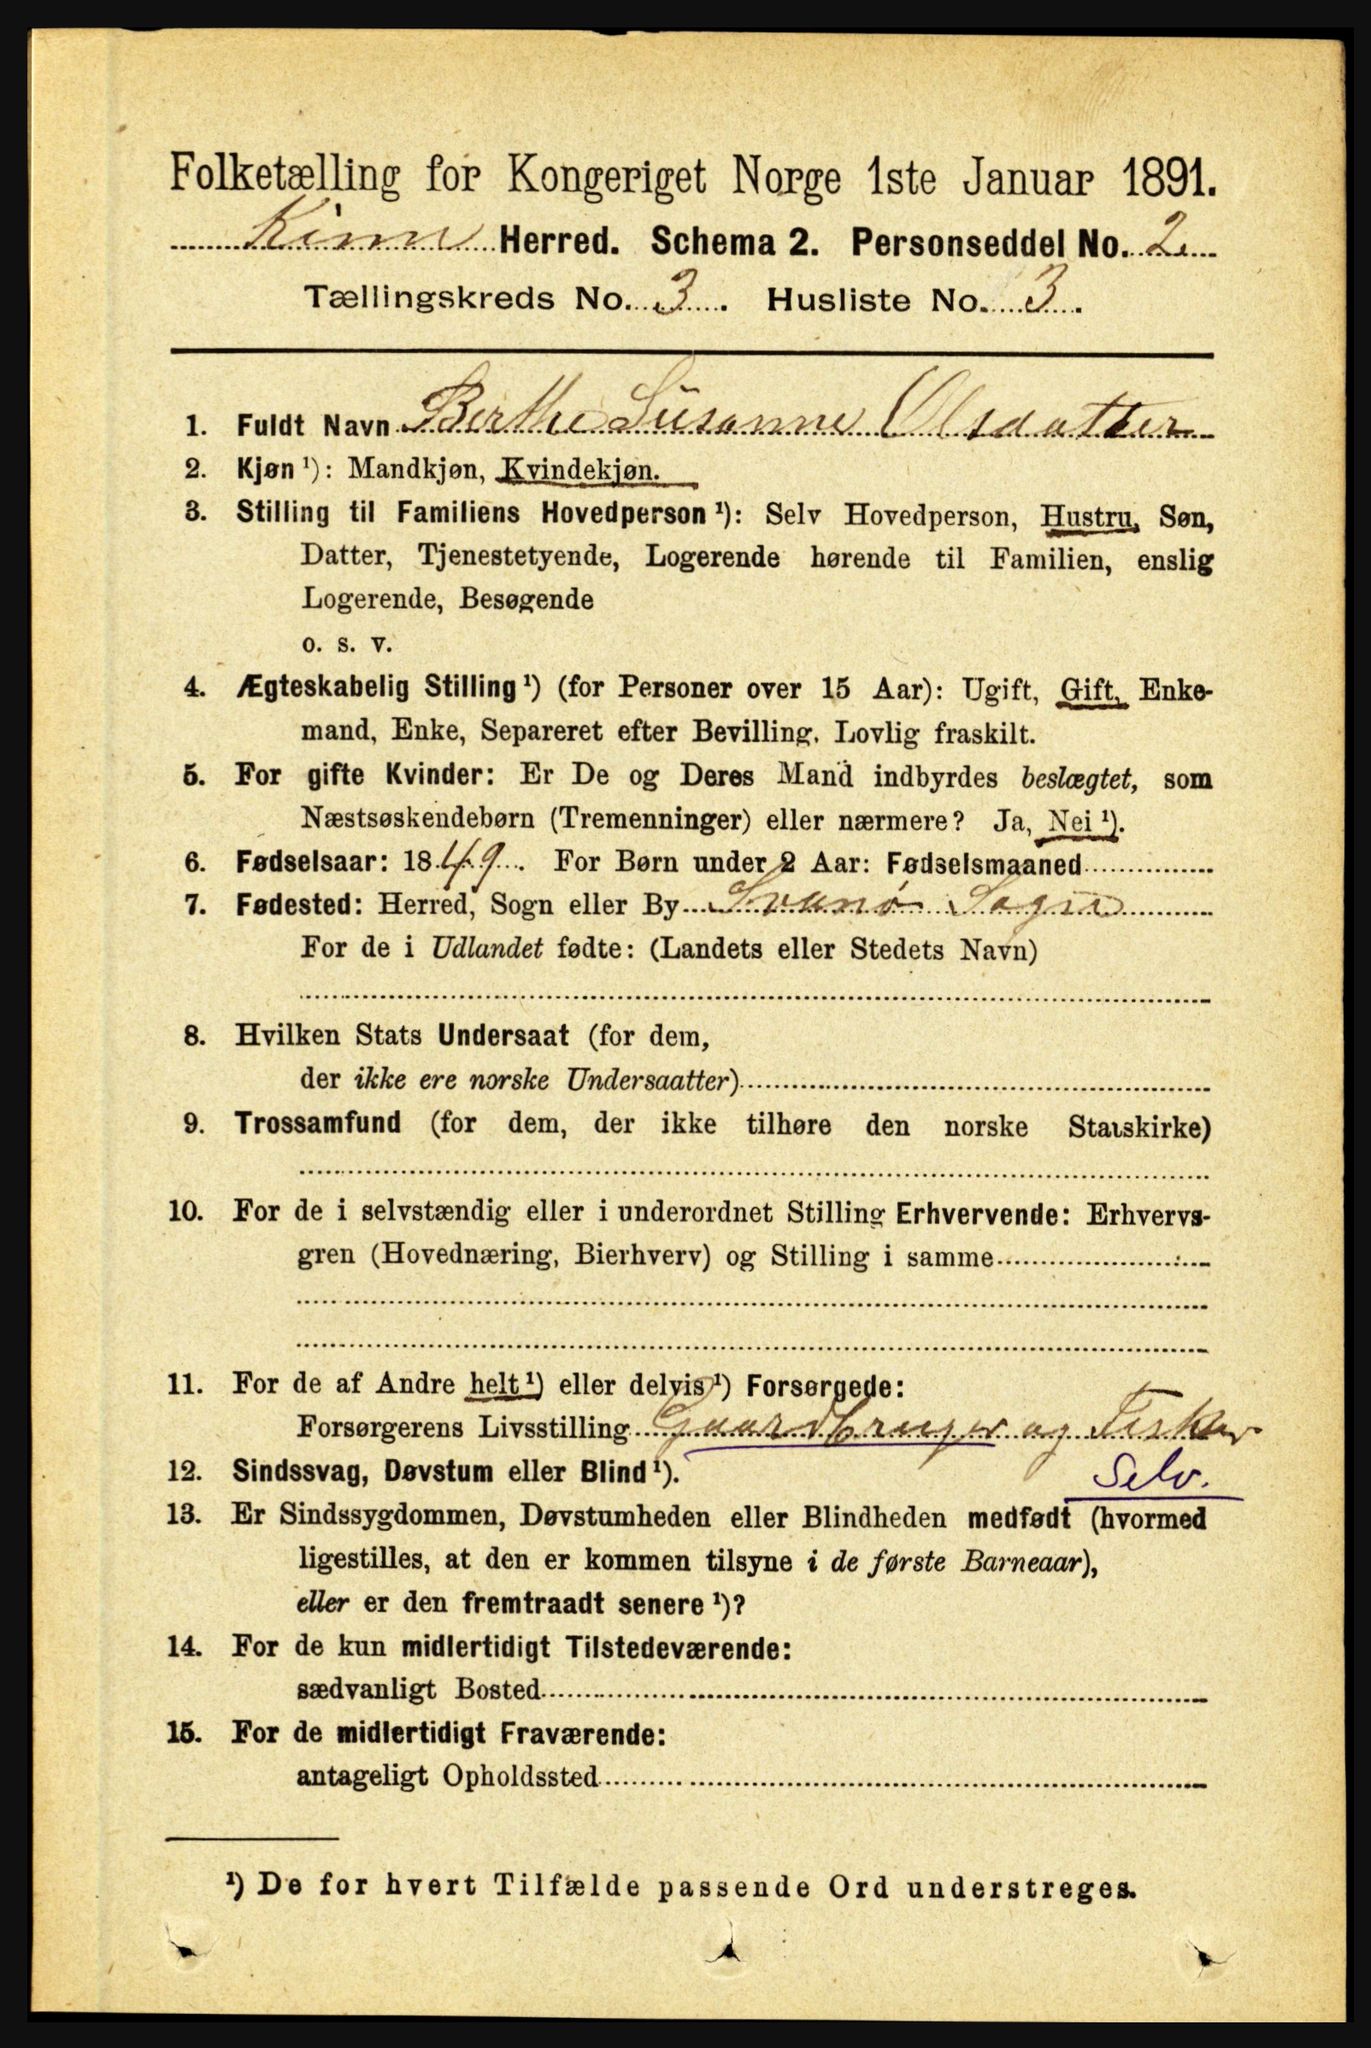 Folketælling for Kongeriget Norge 1ste Januar 1891.
Kinn Herred. Schema 2. Personseddel No. 2.
Tællingskreds No. 3. Husliste No. 3.
1. Fuldt Navn Berthe Susanne Olsdatter
2. Kjøn ¹): Mandkjøn, Kvindekjøn.
3. Stilling til Familiens Hovedperson ¹): Selv Hovedperson, Hustru, Søn,
Datter, Tjenestetyende, Logerende hørende til Familien, enslig
Logerende, Besøgende
o. s. v.
4. Ægteskabelig Stilling ¹) (for Personer over 15 Aar): Ugift, Gift, Enke-
mand, Enke, Separeret efter Bevilling. Lovlig fraskilt.
5. For gifte Kvinder: Er De og Deres Mand indbyrdes beslægtet, som
Næstsøskendebørn (Tremenninger) eller nærmere? Ja, Nei ¹).
6. Fødselsaar: 1849. For Børn under 2 Aar: Fødselsmaaned
7. Fødested: Herred, Sogn eller By Svanø Sogn
For de i Udlandet fødte: (Landets eller Stedets Navn)
8. Hvilken Stats Undersaat (for dem,
der ikke ere norske Undersaatter)
9. Trossamfund (for dem, der ikke tilhøre den norske Statskirke)
10. For de i selvstændig eller i underordnet Stilling Erhvervende: Erhvervs-
gren (Hovednæring, Bierhverv) og Stilling i samme
11. For de af Andre helt ¹) eller delvis ¹) Forsørgede:
Forsørgerens Livsstilling Gaardbruger og Fisker
Selv.
12. Sindssvag, Døvstum eller Blind ¹).
13. Er Sindssygdommen, Døvstumheden eller Blindheden medfødt (hvormed
ligestilles, at den er kommen tilsyne i de første Barneaar),
eller er den fremtraadt senere ¹)?
14. For de kun midlertidigt Tilstedeværende:
sædvanligt Bosted
15. For de midlertidigt Fraværende:
antageligt Opholdssted
¹) De for hvert Tilfælde passende Ord understreges.